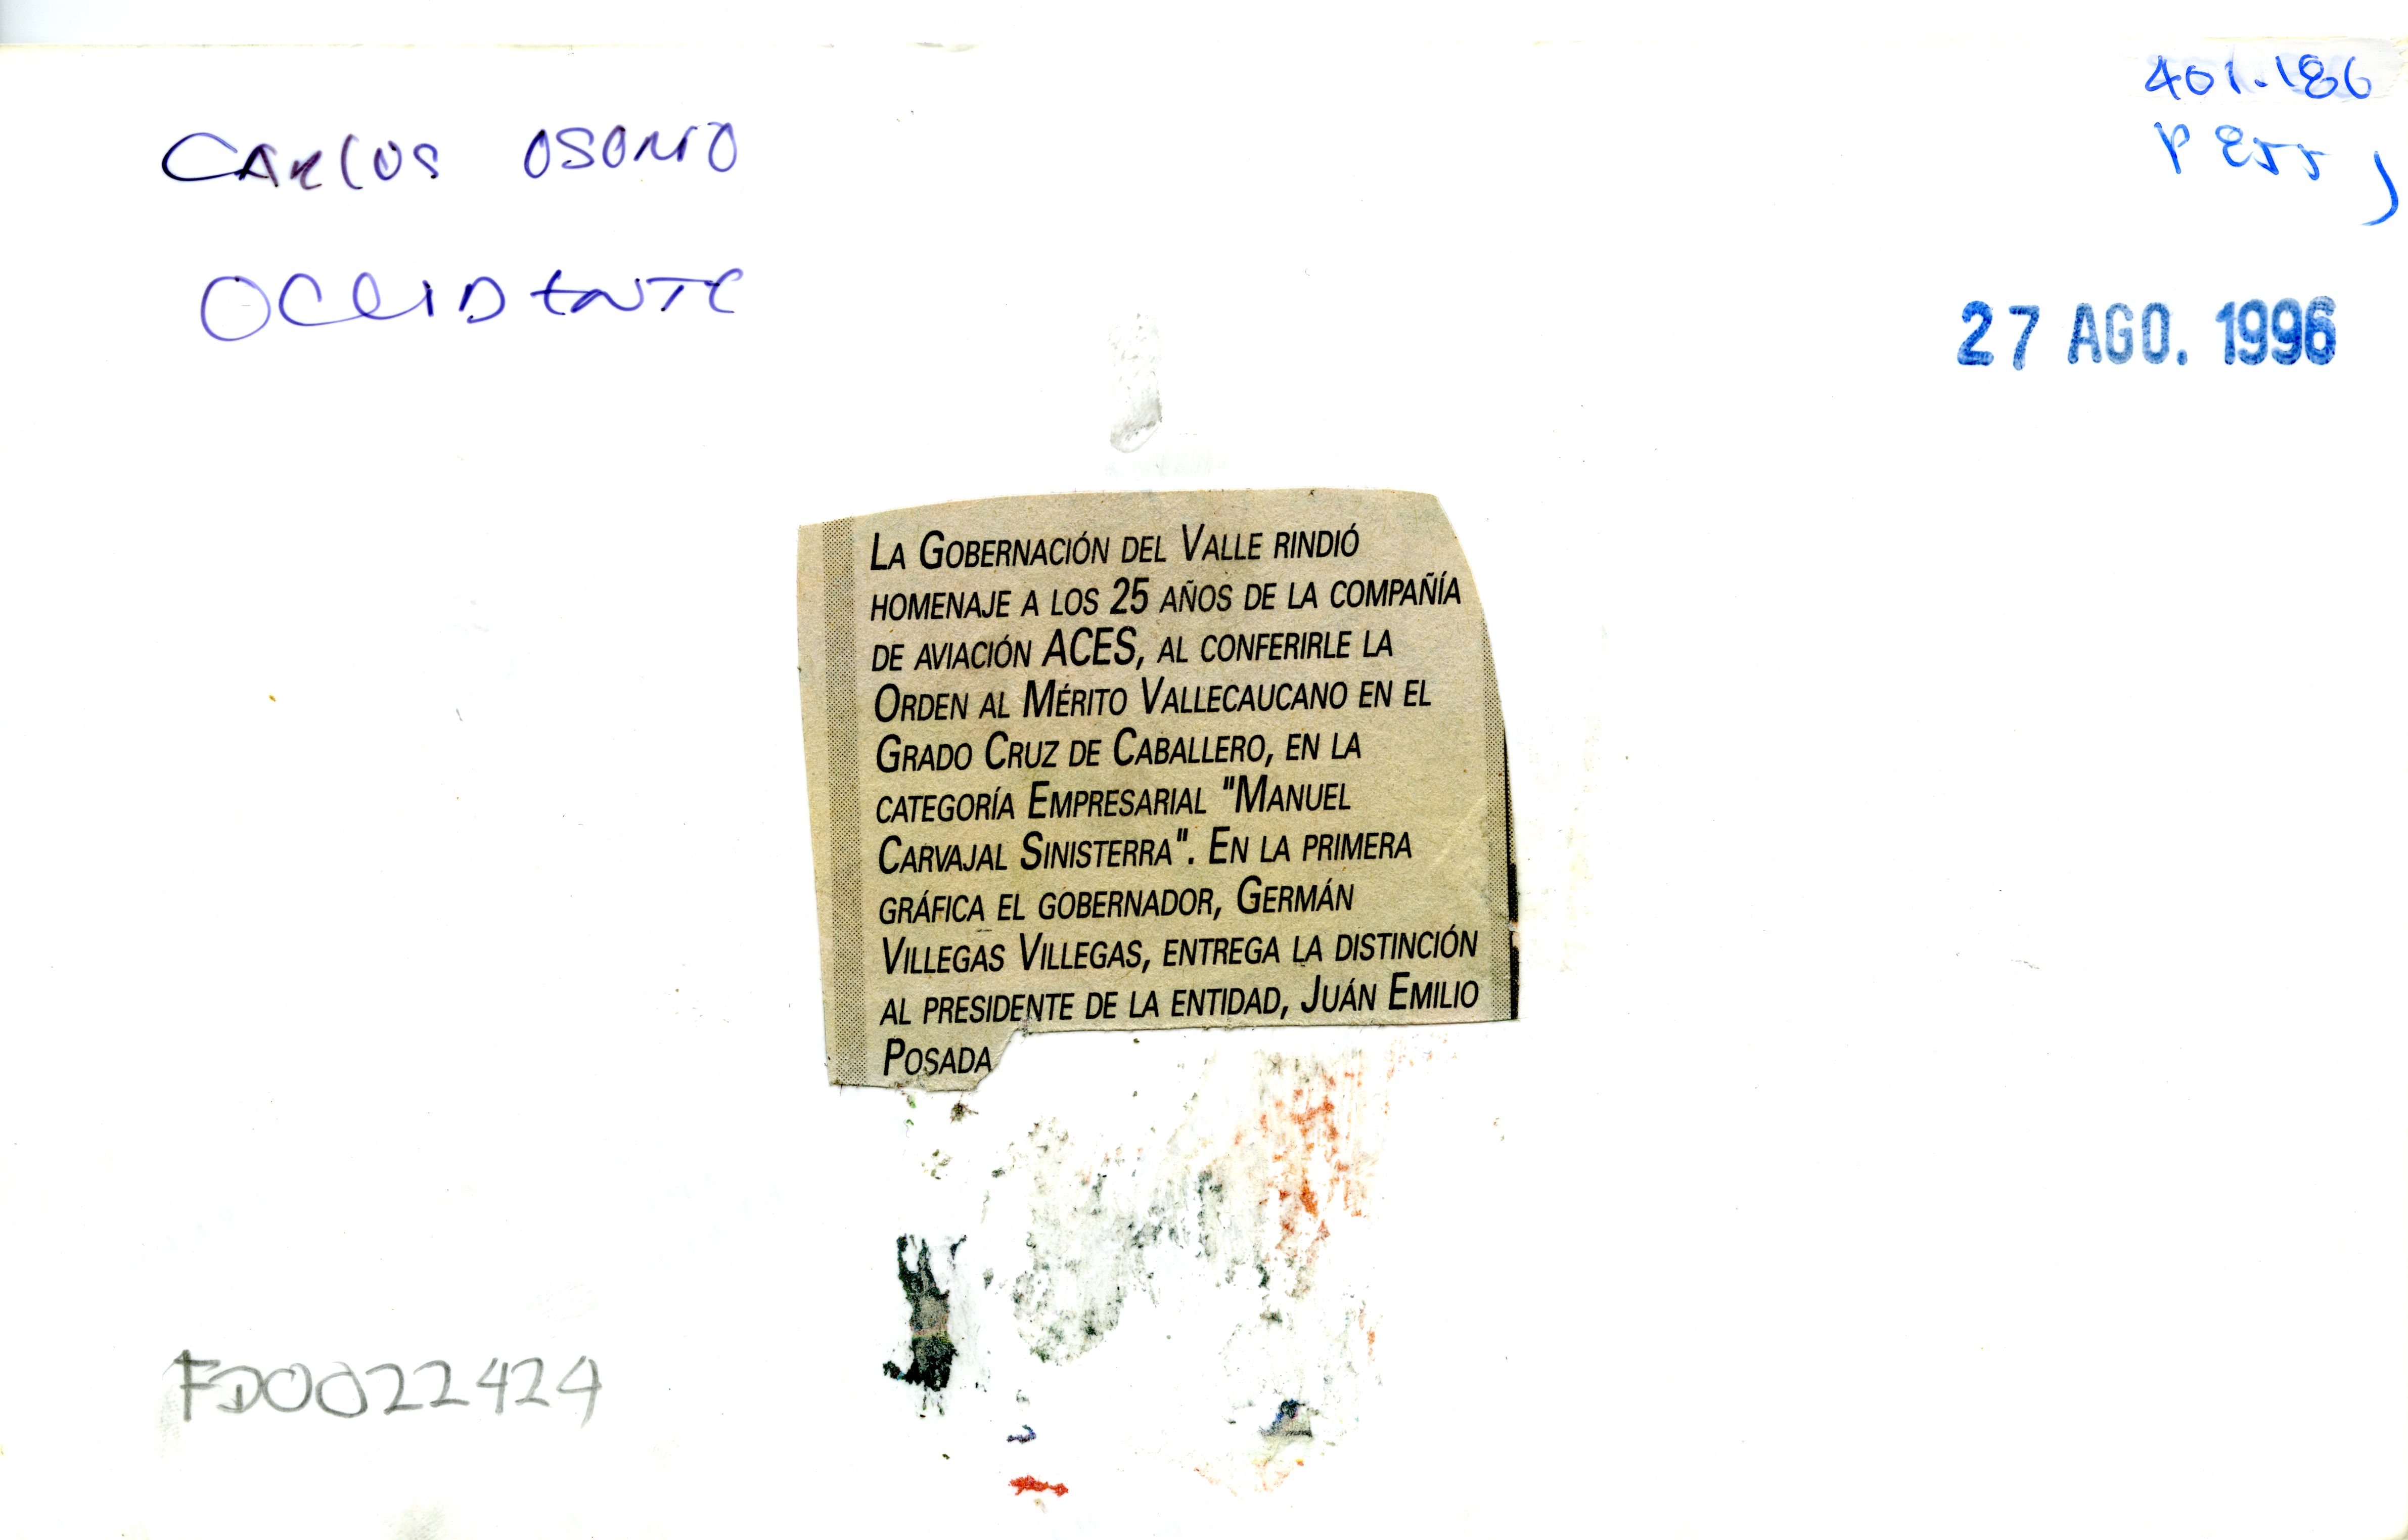 401.186
CARLOS OSORIO
OCCIDENTE
27 AGO. 1996
LA GOBERNACIÓN DEL VALLE RINDIÓ
HOMENAJE A LOS 25 AÑOS DE LA COMPAÑÍA
DE AVIACIÓN ACES, AL CONFERIRLE LA
ORDEN AL MÉRITO VALLECAUCANO EN EL
GRADO CRUZ DE CABALLERO, EN LA
CATEGORÍA EMPRESARIAL "MANUEL
CARVAJAL SINISTERRA". EN LA PRIMERA
GRÁFICA EL GOBERNADOR, GERMÁN
VILLEGAS VILLEGAS, ENTREGA LA DISTINCIÓN
AL PRESIDENTE DE LA ENTIDAD, JUÁN EMILIO
POSADA
FD0022424